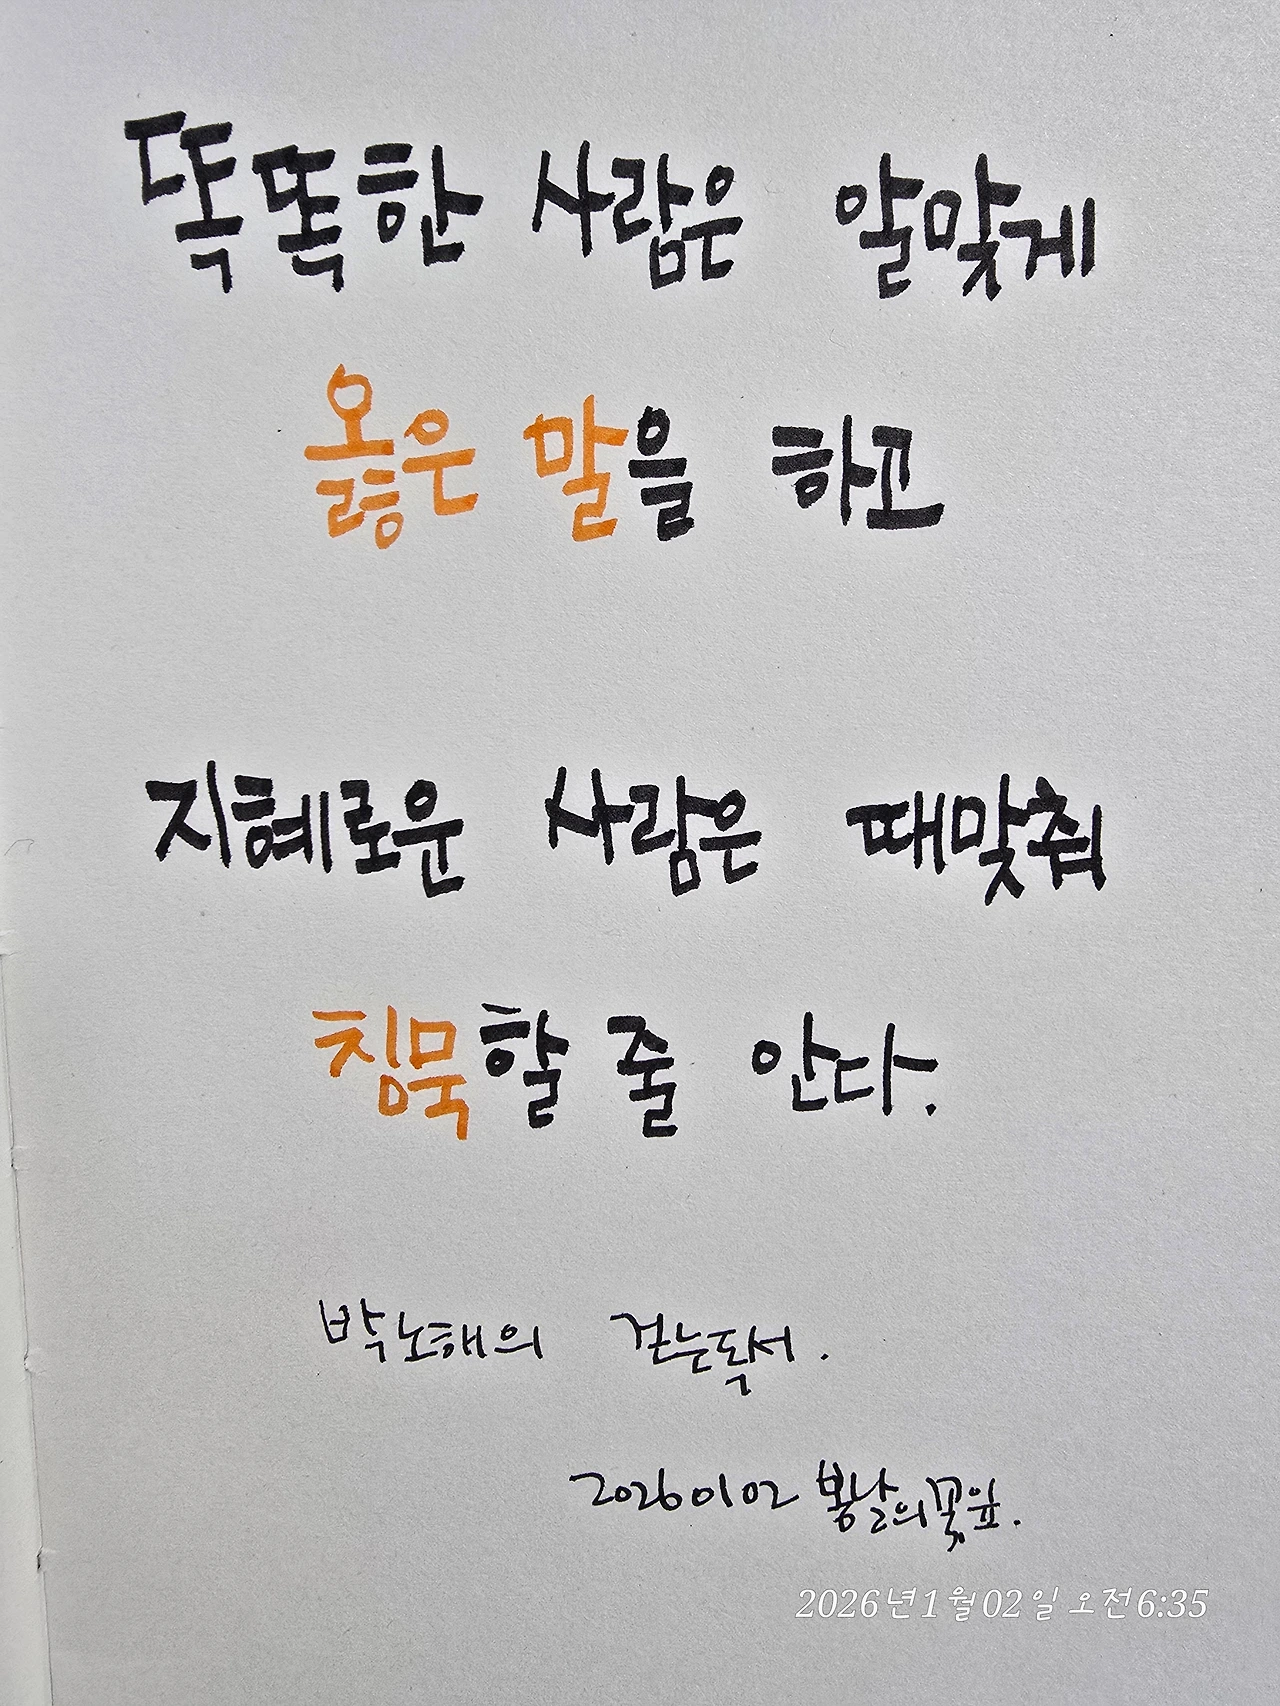 똑똑한 사람은 알맞게
옳은 말을 하고
지혜로운 사람은 때맞춰
침묵할 줄 안다.
박노해의 걷는독서.
20260102 봄날의꽃잎.
2026년1월02일 오전6:35